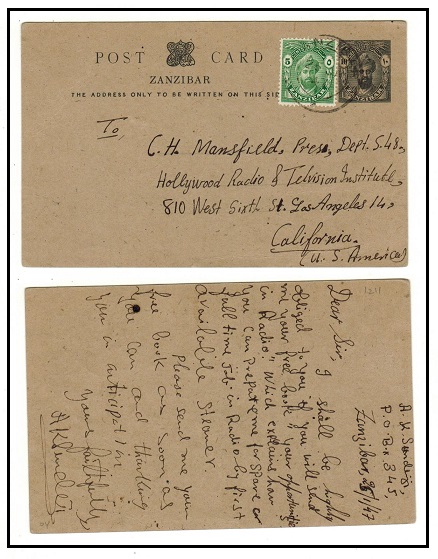 POST CARD
ZANZIBAR
THE ADDRESS ONLY TO BE WRITTEN ON THIS SIDE
5
ZANZIBAR
ZANZIBAR
To,
C.H. Mansfield, Press, Dept. S.48,
Hollywood Radio & Telvision Institute,
810 West Sixth St. Los Angeles 14,
California.
(U.S. America)
1211
P.O. Box 345,
Zanzibar, 25/1/47
Dear Sir,
I shall be highly
obliged to you if you will send
me your free book "your opportunities
in Radio." Which explains how
you can prepare me for spare or
full time Job in Radio by first
available Steamer.
Please send me your
free book as soon as
you can and thanking
you in anticipation
Yours faithfully,